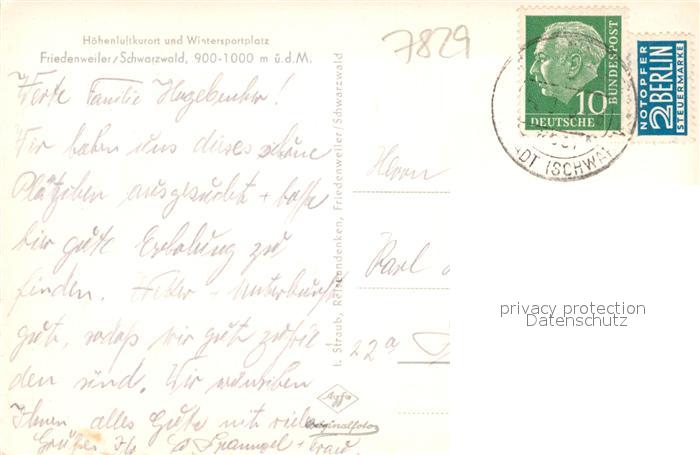 Höhenluftkurort und Wintersportplatz
Friedenweiler/Schwarzwald, 900-1000 m ü.d.M.
7829
Werte Familie
Wir haben uns dieses schöne
Plätzchen ausgesucht + hoffe
hier gute Erholung zu
finden. Wetter - Unterkunft
gut, sodaß wir gut zufrie
den sind. Wir wünschen
Ihnen alles Gute mit viele
Grüßen Ihr + Frau.
I. Straub, Reiseandenken, Friedenweiler/Schwarzwald
Agfa
Originalfoto
Herrn
Karl
22a
10
DEUTSCHE
BUNDESPOST
NOTOPFER
2 BERLIN
STEUERMARKE
ADT (SCHWA
privacy protection
Datenschutz